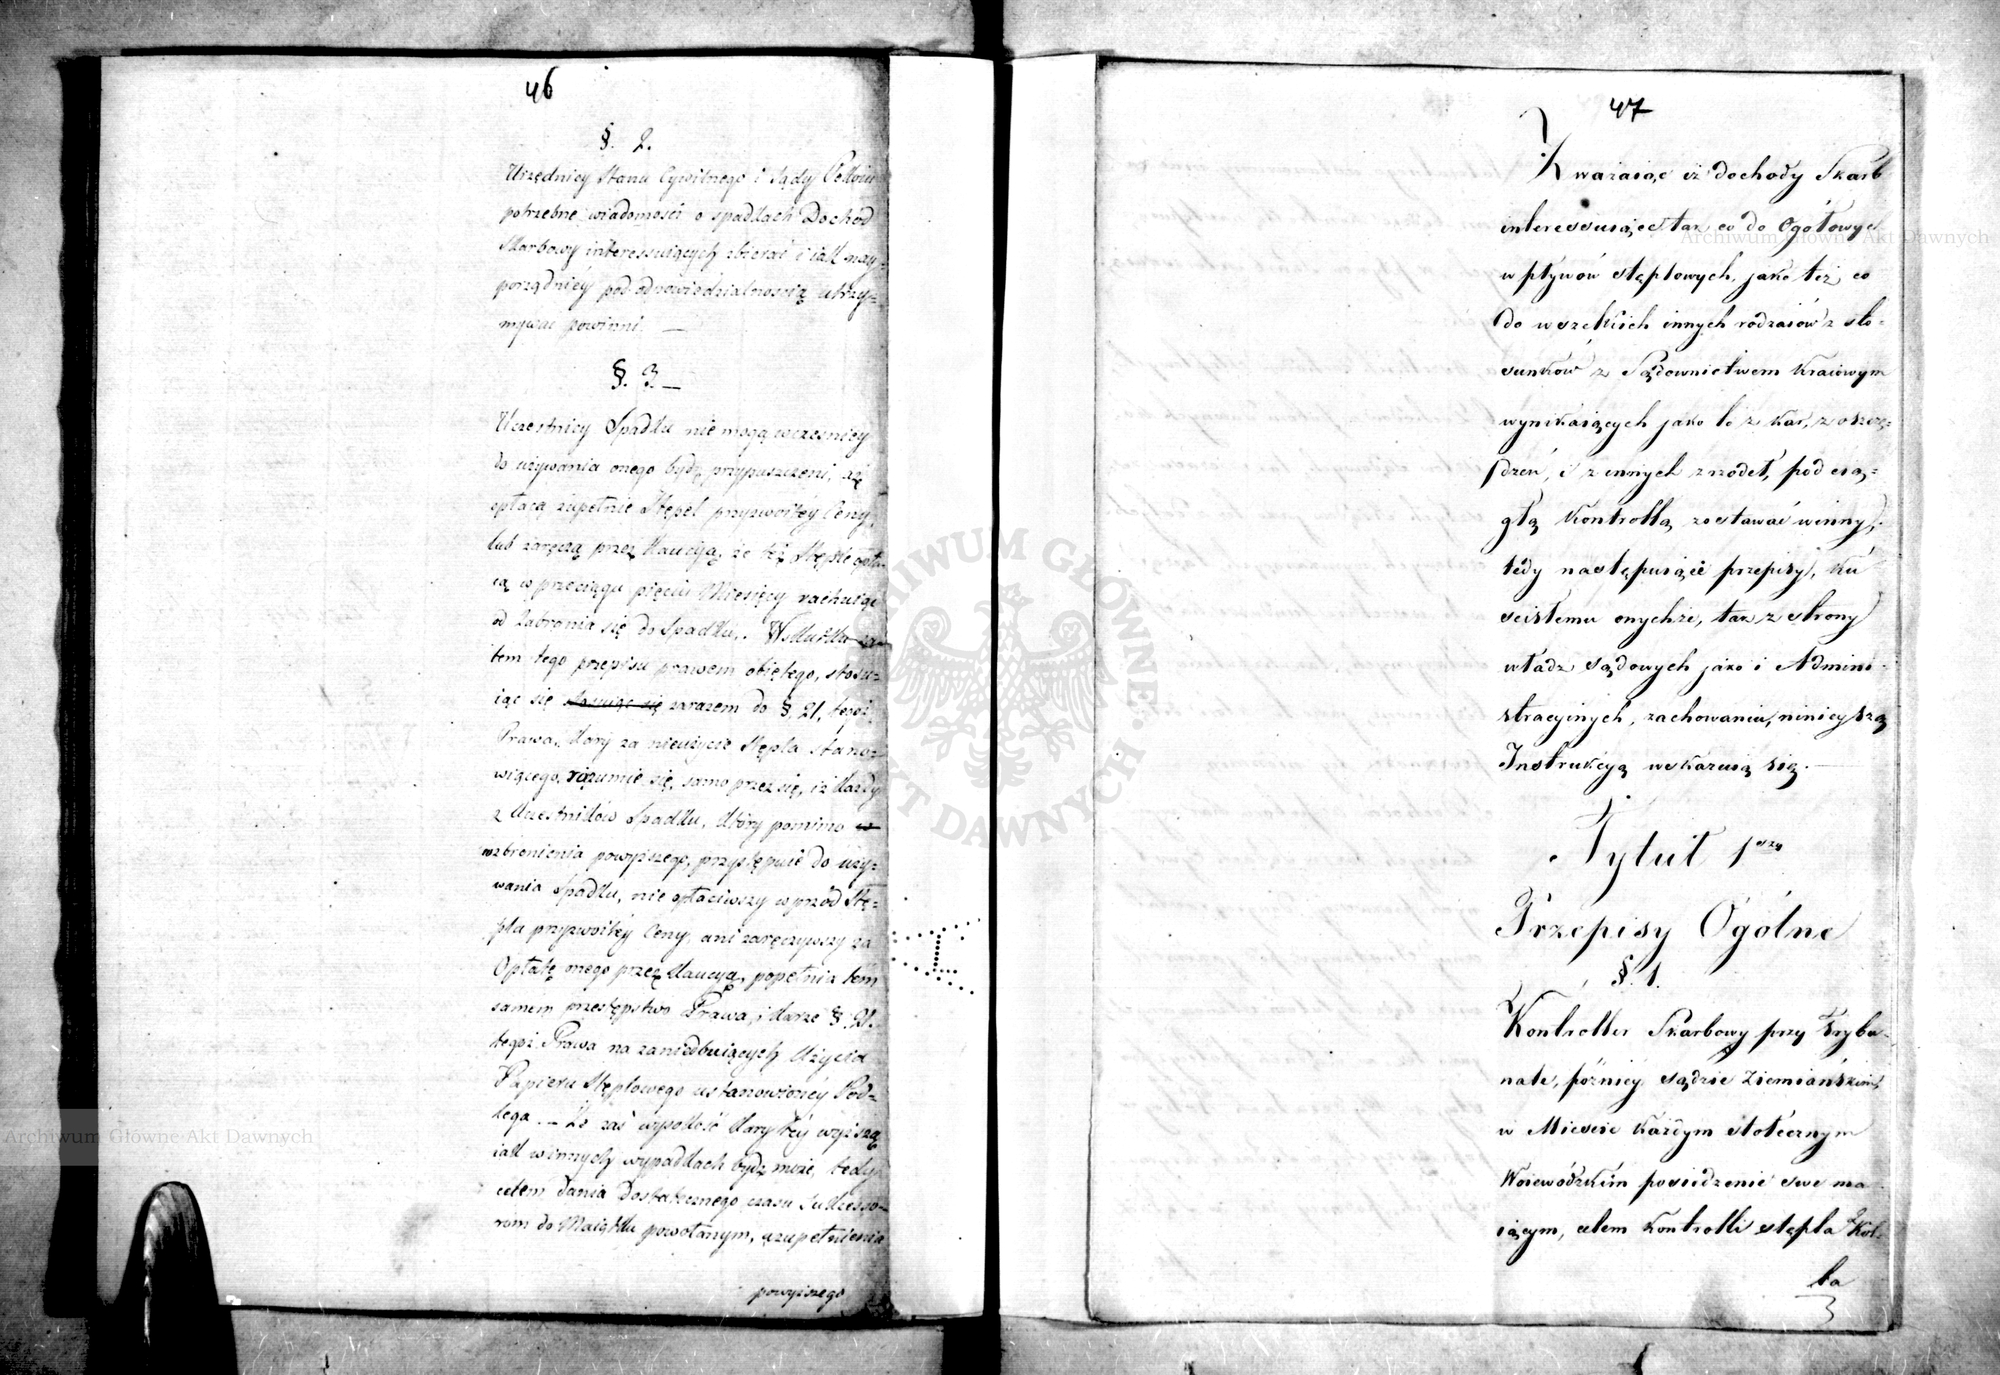 46
§. 2.
Urzędnicy Stanu Cywilnego i Sądy Celem
potrzebne wiadomości o spadkach Dochód
Skarbowy interessuiących zbierać i iak nay-
porządniéy pod odpowiedzialnością utrzy-
mywać powinni. —
§. 3. —
Uczestnicy Spadku nie mogą wcześniey
do używania onego bydź przypuszczeni, aż
opłacą zupełnie Stępel przyzwoitéy Ceny,
lub zaręczą przez Kaucyą, że też Stęple opła-
cą w przeciągu pięciu Miesięcy rachuiąc
od Zabrania się do Spadku. Wskutku za-
tem tego przepisu prawem obiętego, stosu-
iąc się stosuiąc się zarazem do §. 21, tegoż
Prawa, kary za nieużycie Stępla stano-
wiącego, rozumie się, samo przez się, iż każdy
z Uczestników Spadku, który pomimo w
wzbronienia powyższego, przystępuie do uży-
wania Spadku, nie opłaciwszy wprzód Stę-
pla przyzwoitéy Ceny, ani zaręczywszy za
Opłatę onego przez Kaucyą, popełnia tém
samem przestępstwo Prawa, i karze §. 21.
tegoż Prawa na zaniedbuiących Użycia
Papieru Stęplowego ustanowionéy Pod-
lega. — Że zaś wysokość kary téy wyższą
iak w innych wypadkach bydź może, tedy
celem dania dostatecznego czasu Sukcesso-
rom do Maiątku powołanym, uzupełnienia
powyższego
47
Zważaiąc iż dochody Skarb
interessuiące tak co do Ogółowych
wpływów stęplowych, jako też co
do wszelkich innych rodzaiów z sto-
sunków z Sądownictwem Kraiowym
wynikaiących jako to z kar, z oszczę-
dzeń, i z innych zrzodeł, pod cią-
głą Kontrollą zostawać winny,
tedy następuiące przepisy, ku
ścisłemu onychże, tak z strony
władz sądowych jako i Admini-
stracyinych, zachowaniu, ninieyszą
Instrukcyą wskazuią się. —
Tytuł 1wszy
Przepisy Ogólne
§. 1.
Kontroller Skarbowy przy Trybu-
nale, późniéy sądzie Ziemiańskim,
w Mieście każdym stołecznym
Woiewódzkim posiedzenie swe ma-
iącym, celem Kontrolli stępla i Kol-
la
3